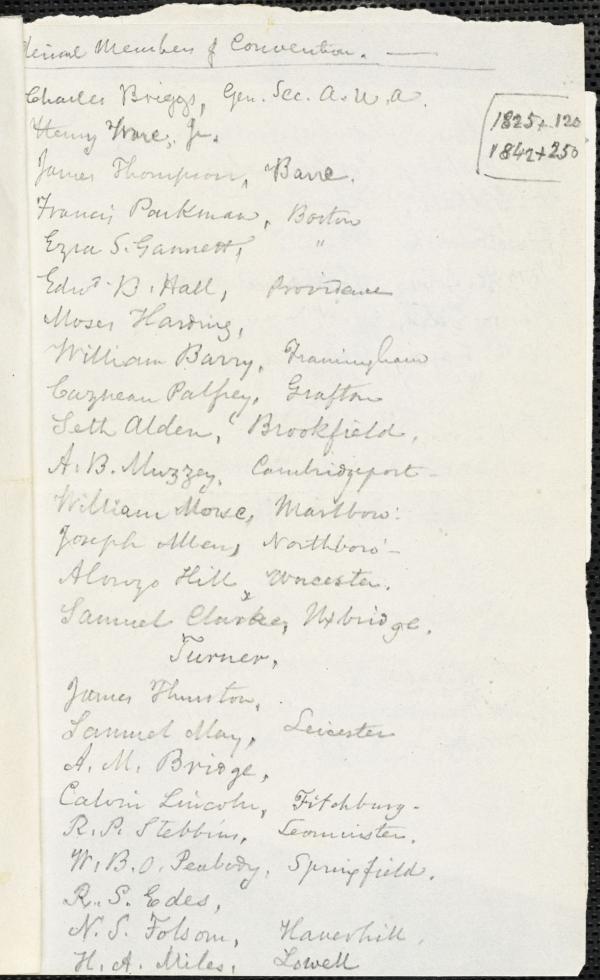 Members of Convention. —
Charles Briggs, Gen. Sec. A.U.A.
1825+120
1842+250
Henry Ware, Jr.
James Thompson, Barre.
Francis Parkman, Boston
Ezra S. Gannett, "
Edwd B. Hall, Providence
Moses Harding,
William Barry, Framingham
Cazneau Palfrey, Grafton
Seth Alden, Brookfield,
A. B. Muzzey, Cambridgeport -
William Morse, Marlboro'.
Joseph Allen, Northboro' -
Alonzo Hill, Worcester.
Samuel Clarke, Uxbridge.
Turner,
James Thurston,
Samuel May, Leicester
A. M. Bridge,
Calvin Lincoln, Fitchburg -
R. P. Stebbins, Leominster.
W. B. O. Peabody, Springfield.
R. S. Edes,
N. S. Folsom, Haverhill.
H. A. Miles, Lowell